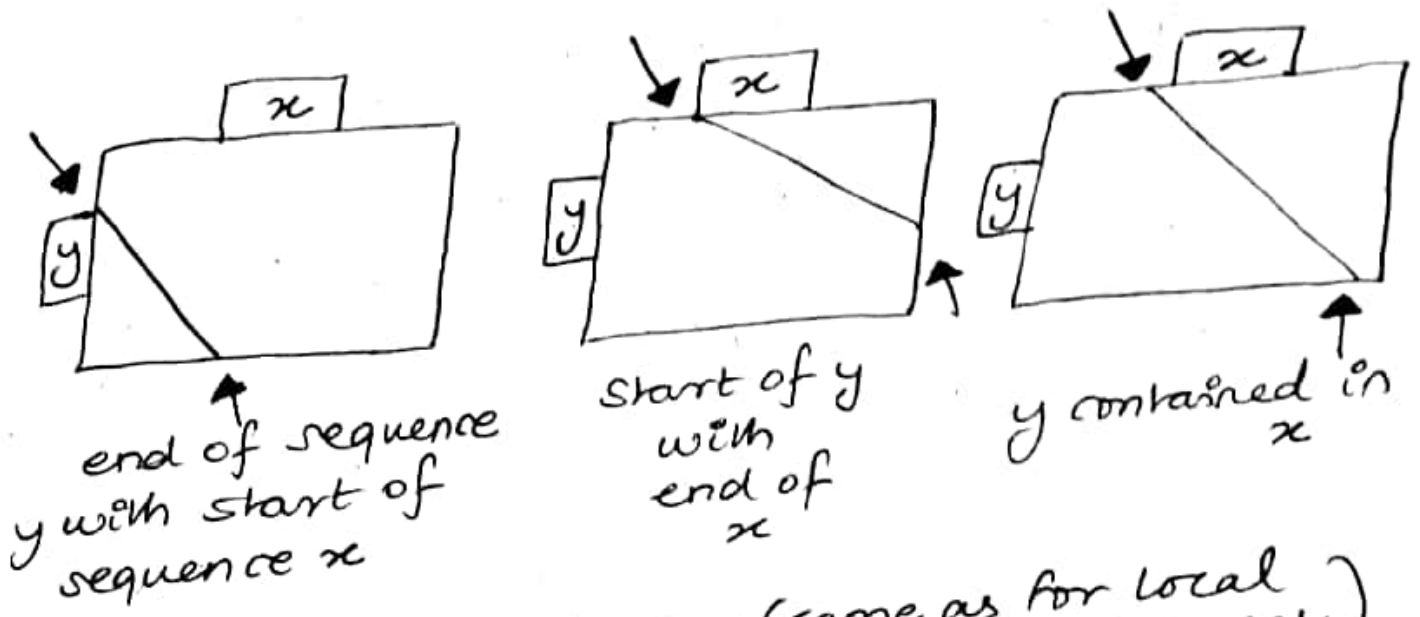 x
y
end of sequence
y with start of
sequence x
x
y
Start of y
with
end of
x
x
y
y contained in
x
(same as for local